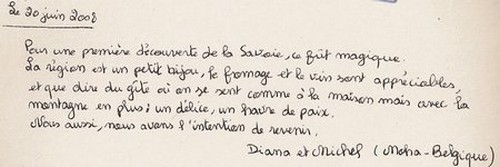 Le 20 juin 2008
Pour une première découverte de la Savoie, ce fût magique.
La région est un petit bijou, le fromage et le vin sont appréciables,
et que dire du gîte où on se sent comme à la maison mais avec la
montagne en plus ; un délice, un havre de paix.
Nous aussi, nous avons l'intention de revenir.
Diana et Michel (Moha-Belgique)